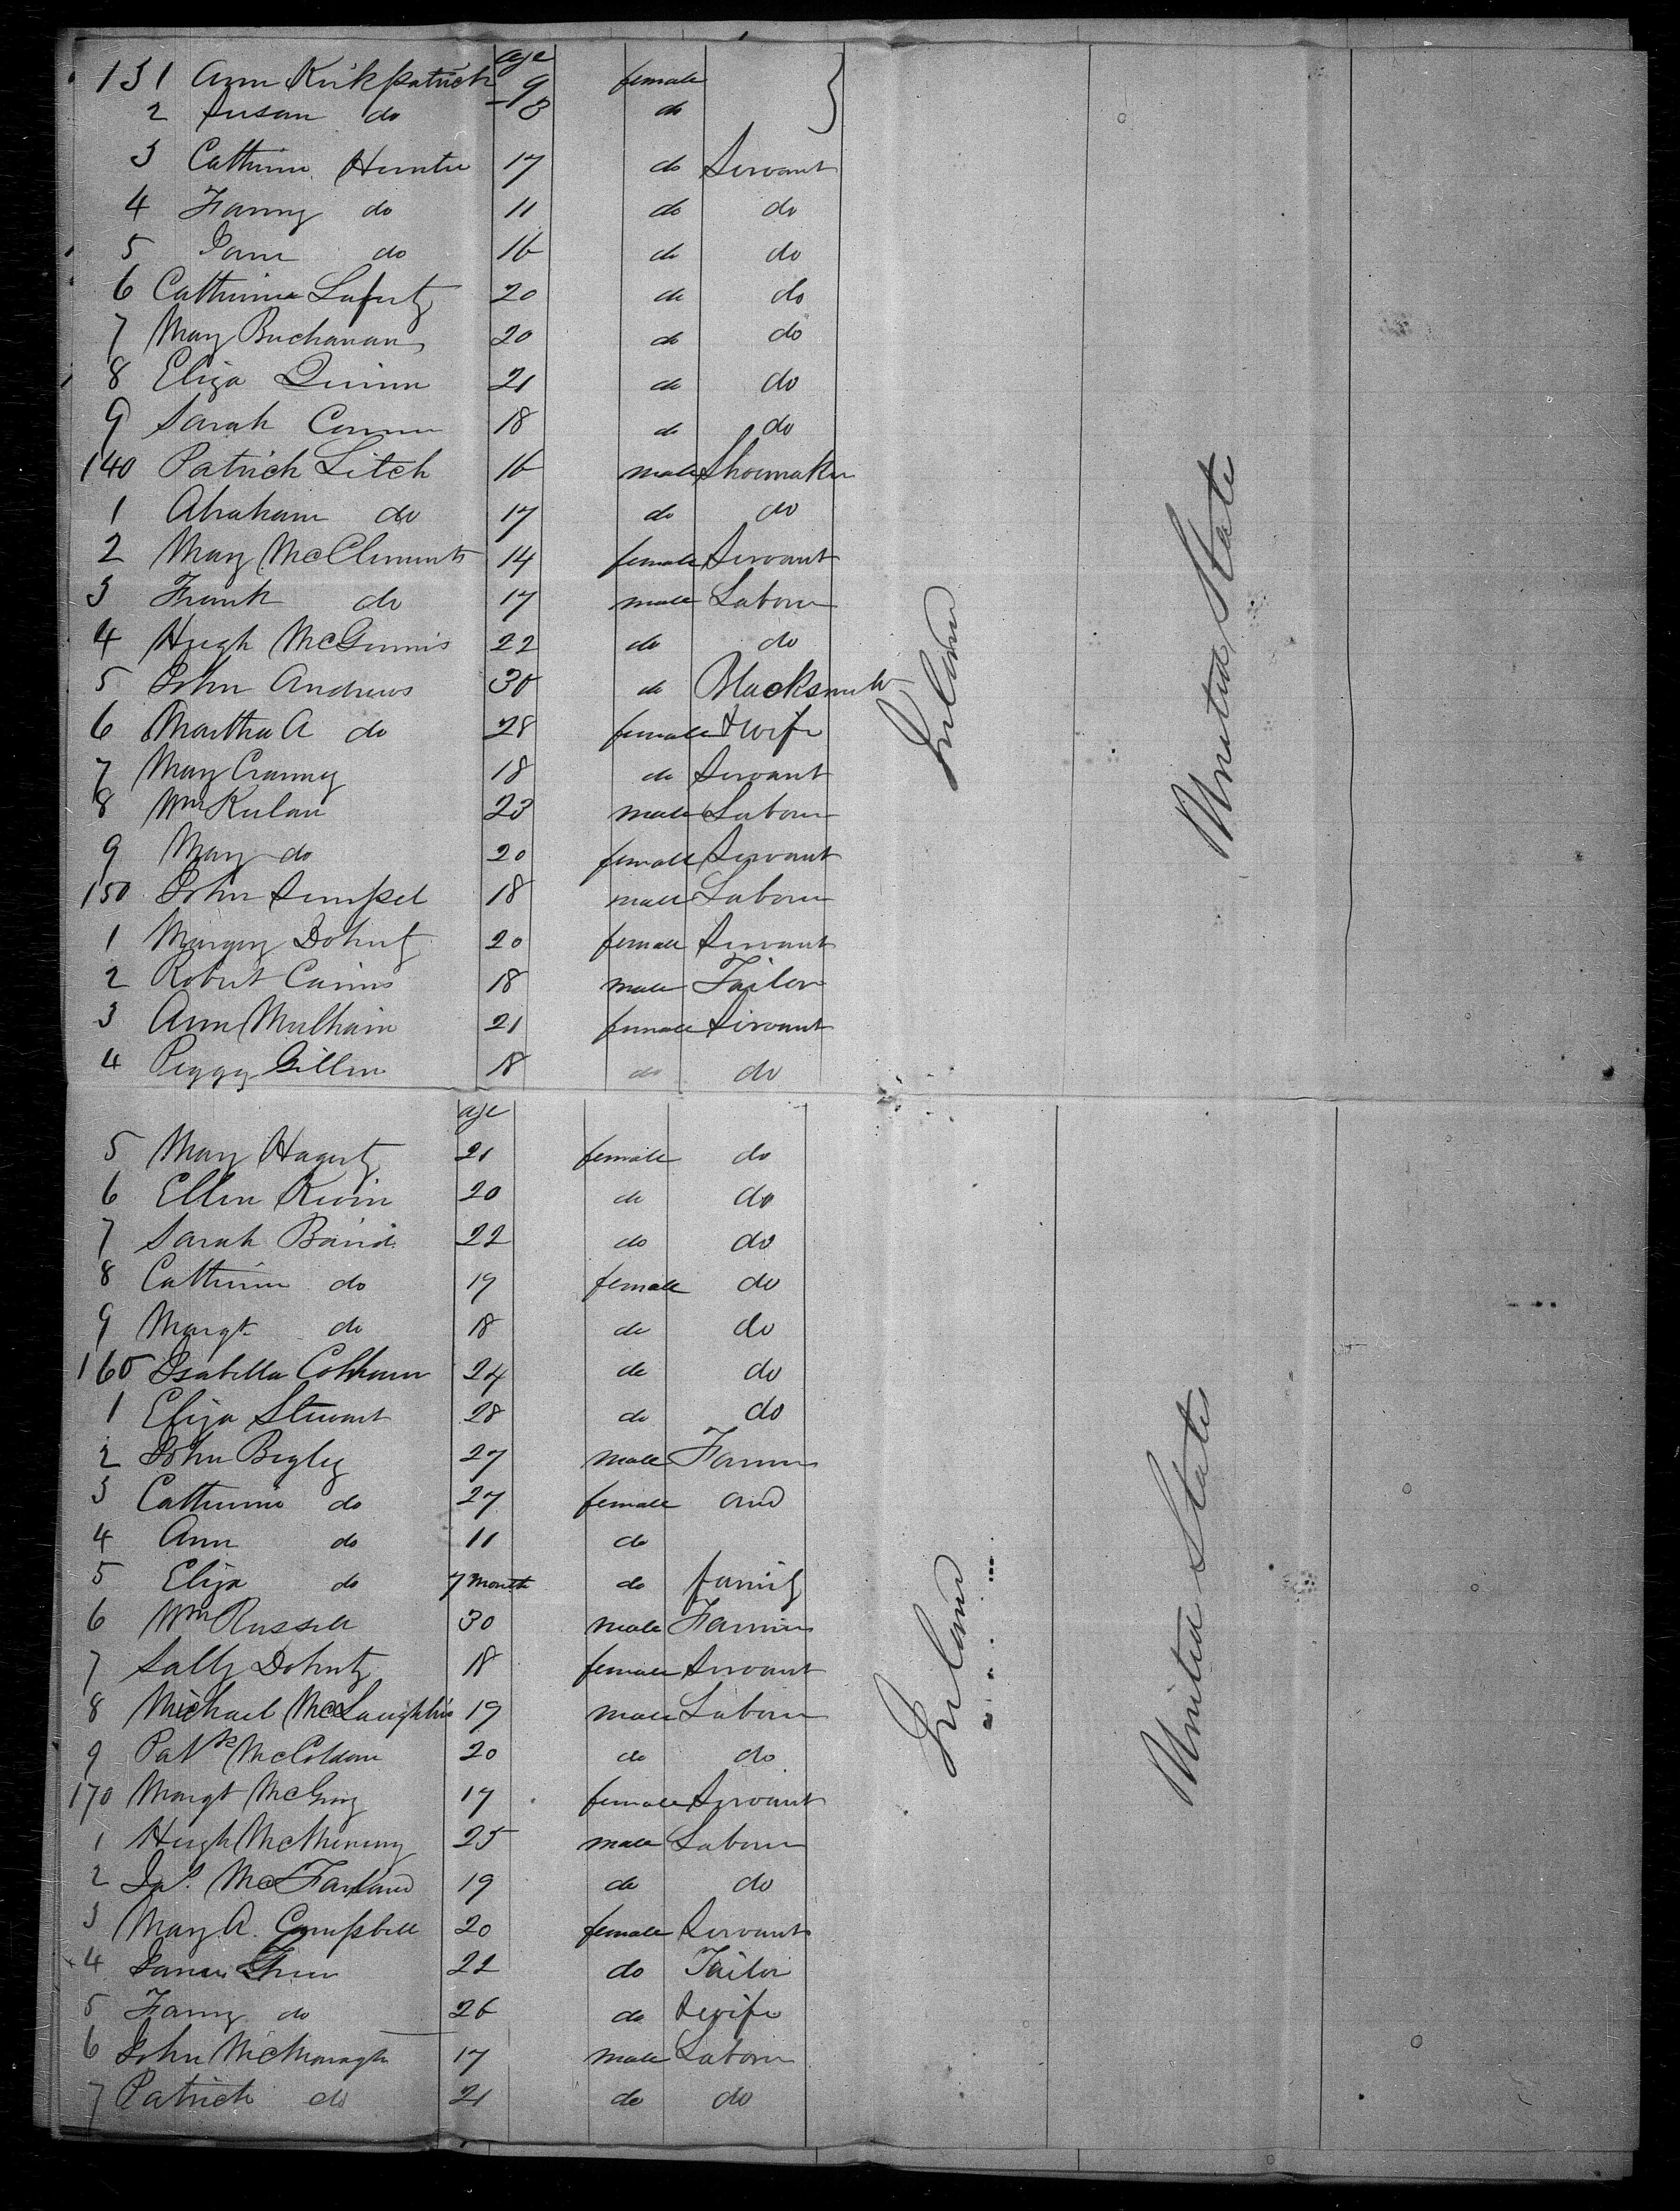 age
131 Ann Kirkpatrick 9 female
2 Susan do 8 do
3 Catherine Hunter 17 do Servant
4 Fanny do 11 do do
5 Jane do 16 do do
6 Catherine Laferty 20 do do
7 Mary Buchanan 20 do do
8 Eliza Quinn 21 do do
9 Sarah Conner 18 do do
140 Patrick Litch 16 male Shoemaker
1 Abraham do 17 do do
2 Mary McClements 14 female Servant
3 Frank do 17 male Laborer
4 Hugh McGinnis 22 do do
5 John Andrews 30 do Blacksmith
6 Martha A do 28 female & wife
7 Mary Cranny 18 do Servant
8 Wm 23 male Laborer
9 Mary do 20 female Servant
150 John 18 male Laborer
1 Margery Doherty 20 female Servant
2 Robert Cairns 18 male Tailor
3 Ann Mulhain 21 female Servant
4 Peggy Gillen 18 do do
Ireland
United States
age
5 Mary Hagerty 21 female do
6 Ellen 20 do do
7 Sarah Baird 22 do do
8 Catherine do 19 female do
9 Margt do 18 do do
160 Isabella Colhoun 24 do do
1 Eliza Stewart 28 do do
2 John Begley 27 male Farmer
3 Catherine do 27 female and
4 Ann do 11 do
5 Eliza do 7 month do family
6 Wm Russell 30 male Farmer
7 Sally Doherty 18 female Servant
8 Michael McLaughlin 19 male Laborer
9 Patk McColdan 20 do do
170 Margt 17 female Servant
1 Hugh McMenimy 25 male Laborer
2 Jas. McFarland 19 do do
3 Mary A. Campbell 20 female Servant
4 James 22 do Tailor
5 Fanny do 26 do & wife
6 John McMonagh 17 male Laborer
7 Patrick do 21 do do
Ireland
United States